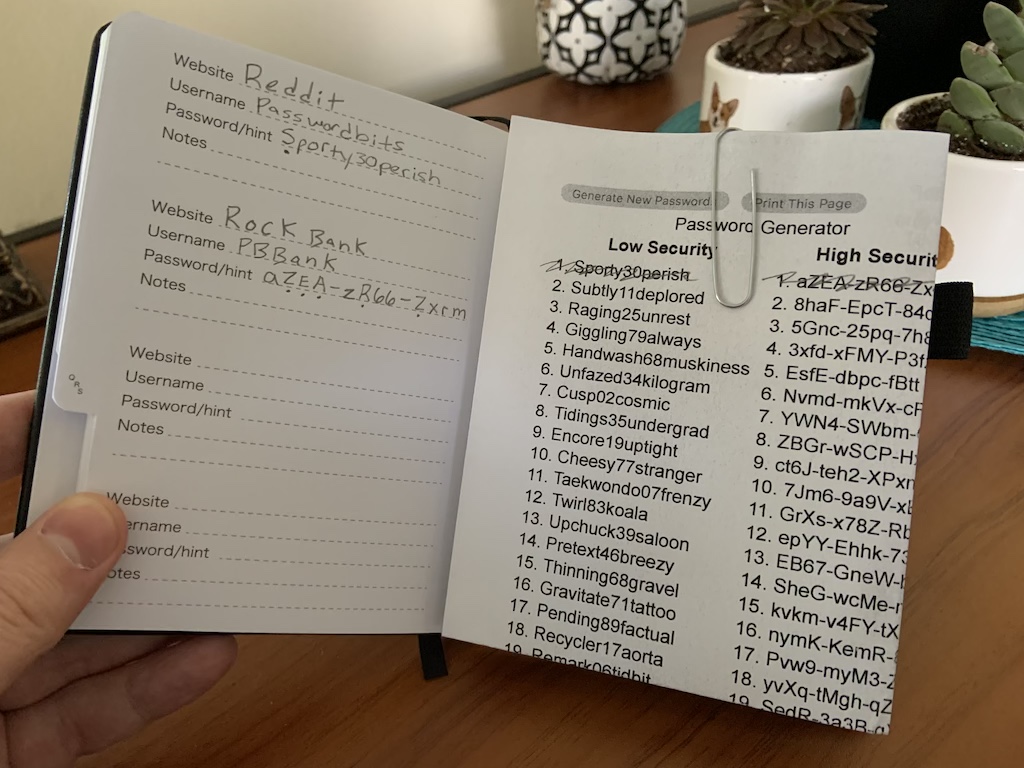 Website Reddit
Username Passwordbits
Password/hint Sporty30perish
Notes
Website Rock Bank
Username PBBank
Password/hint aZEA-zR66-Zxrm
Notes
Website
Username
Password/hint
Notes
Website
ername
ssword/hint
otes
Generate New Password
Print This Page
Password Generator
Low Security
1. Sporty30perish
2. Subtly11deplored
3. Raging25unrest
4. Giggling79always
5. Handwash68muskiness
6. Unfazed34kilogram
7. Cusp02cosmic
8. Tidings35undergrad
9. Encore19uptight
10. Cheesy77stranger
11. Taekwondo07frenzy
12. Twirl83koala
13. Upchuck39saloon
14. Pretext46breezy
15. Thinning68gravel
16. Gravitate71tattoo
17. Pending89factual
18. Recycler17aorta
19. Remark06tidbit
High Securit
1. aZEA-zR66-Zx
2. 8haF-EpcT-84
3. 5Gnc-25pq-7h
4. 3xfd-xFMY-P3f
5. EsfE-dbpc-fBtt
6. Nvmd-mkVx-cF
7. YWN4-SWbm-
8. ZBGr-wSCP-H
9. ct6J-teh2-XPx
10. 7Jm6-9a9V-x
11. GrXs-x78Z-R
12. epYY-Ehhk-73
13. EB67-GneW-
14. SheG-wcMe-
15. kvkm-v4FY-tX
16. nymK-KemR-
17. Pvw9-myM3-Z
18. yvXq-tMgh-qZ
19. SedR-3a3B-